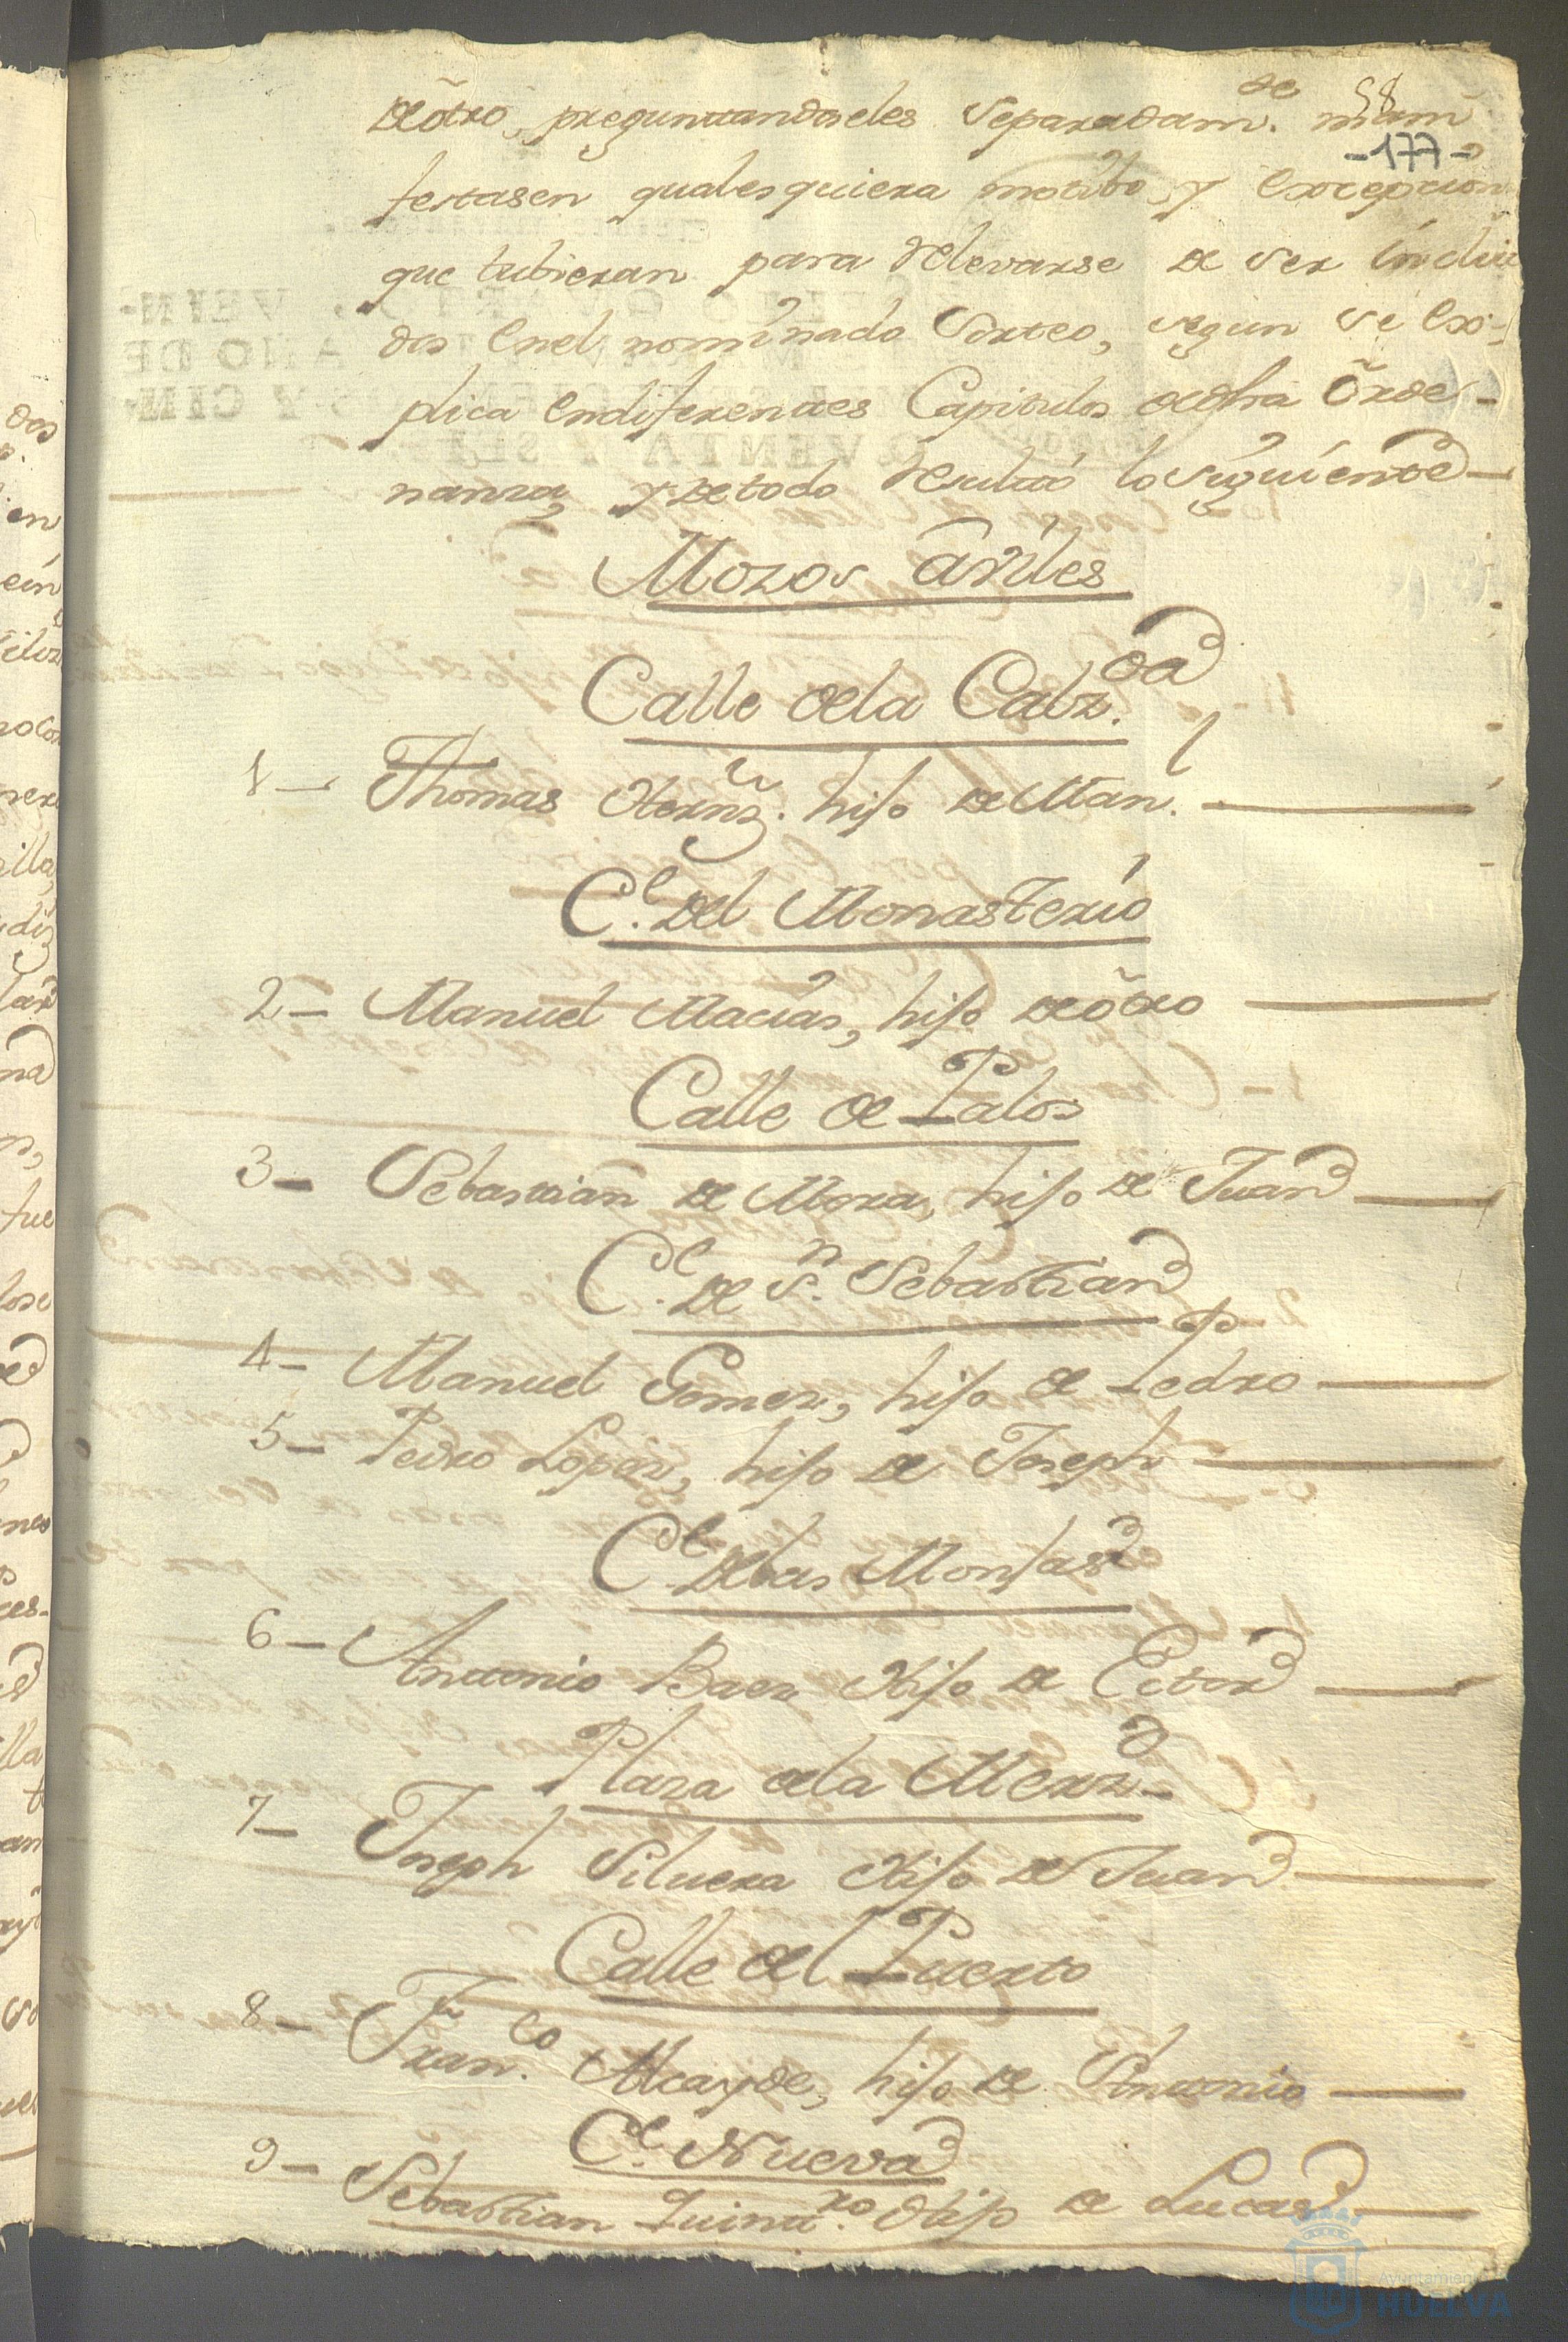 de õtro, preguntandoseles Separadam.te mani
58
-177-
festasen qualesquiera motibo, y Excepcion
que tubieran para Relevarse de ser inclui
dos Enel nominado Sorteo, segun se Ex-
plica Endiferentes Capitulos de dha Õrde-
nanza, y de todo Resultó lo siguiente
Mozos ã Viles
Calle dela Calz.da
1- Thomas Hernz. hijo de Man.l
C.e del Monasterio
2- Manuel Macias, hijo de õtro
Calle de Palos
3- Sebastian de Mora, hijo de Juan
C.e de S.n Sebastian
4- Manuel Gomez, hijo de Pedro
5- Pedro Lopez, hijo de Joseph
C.e delas Monjas
6- Antonio Baez Hijo de Ector
Plaza dela Merz.d
7- Joseph Siluera Hijo de Juan
Calle del Puerto
8- Fran.co Alcayde, hijo de Antonio
C.e Nueva
9- Sebastian Quint.ro Hijo de Lucas
Ayuntamiento
HUELVA